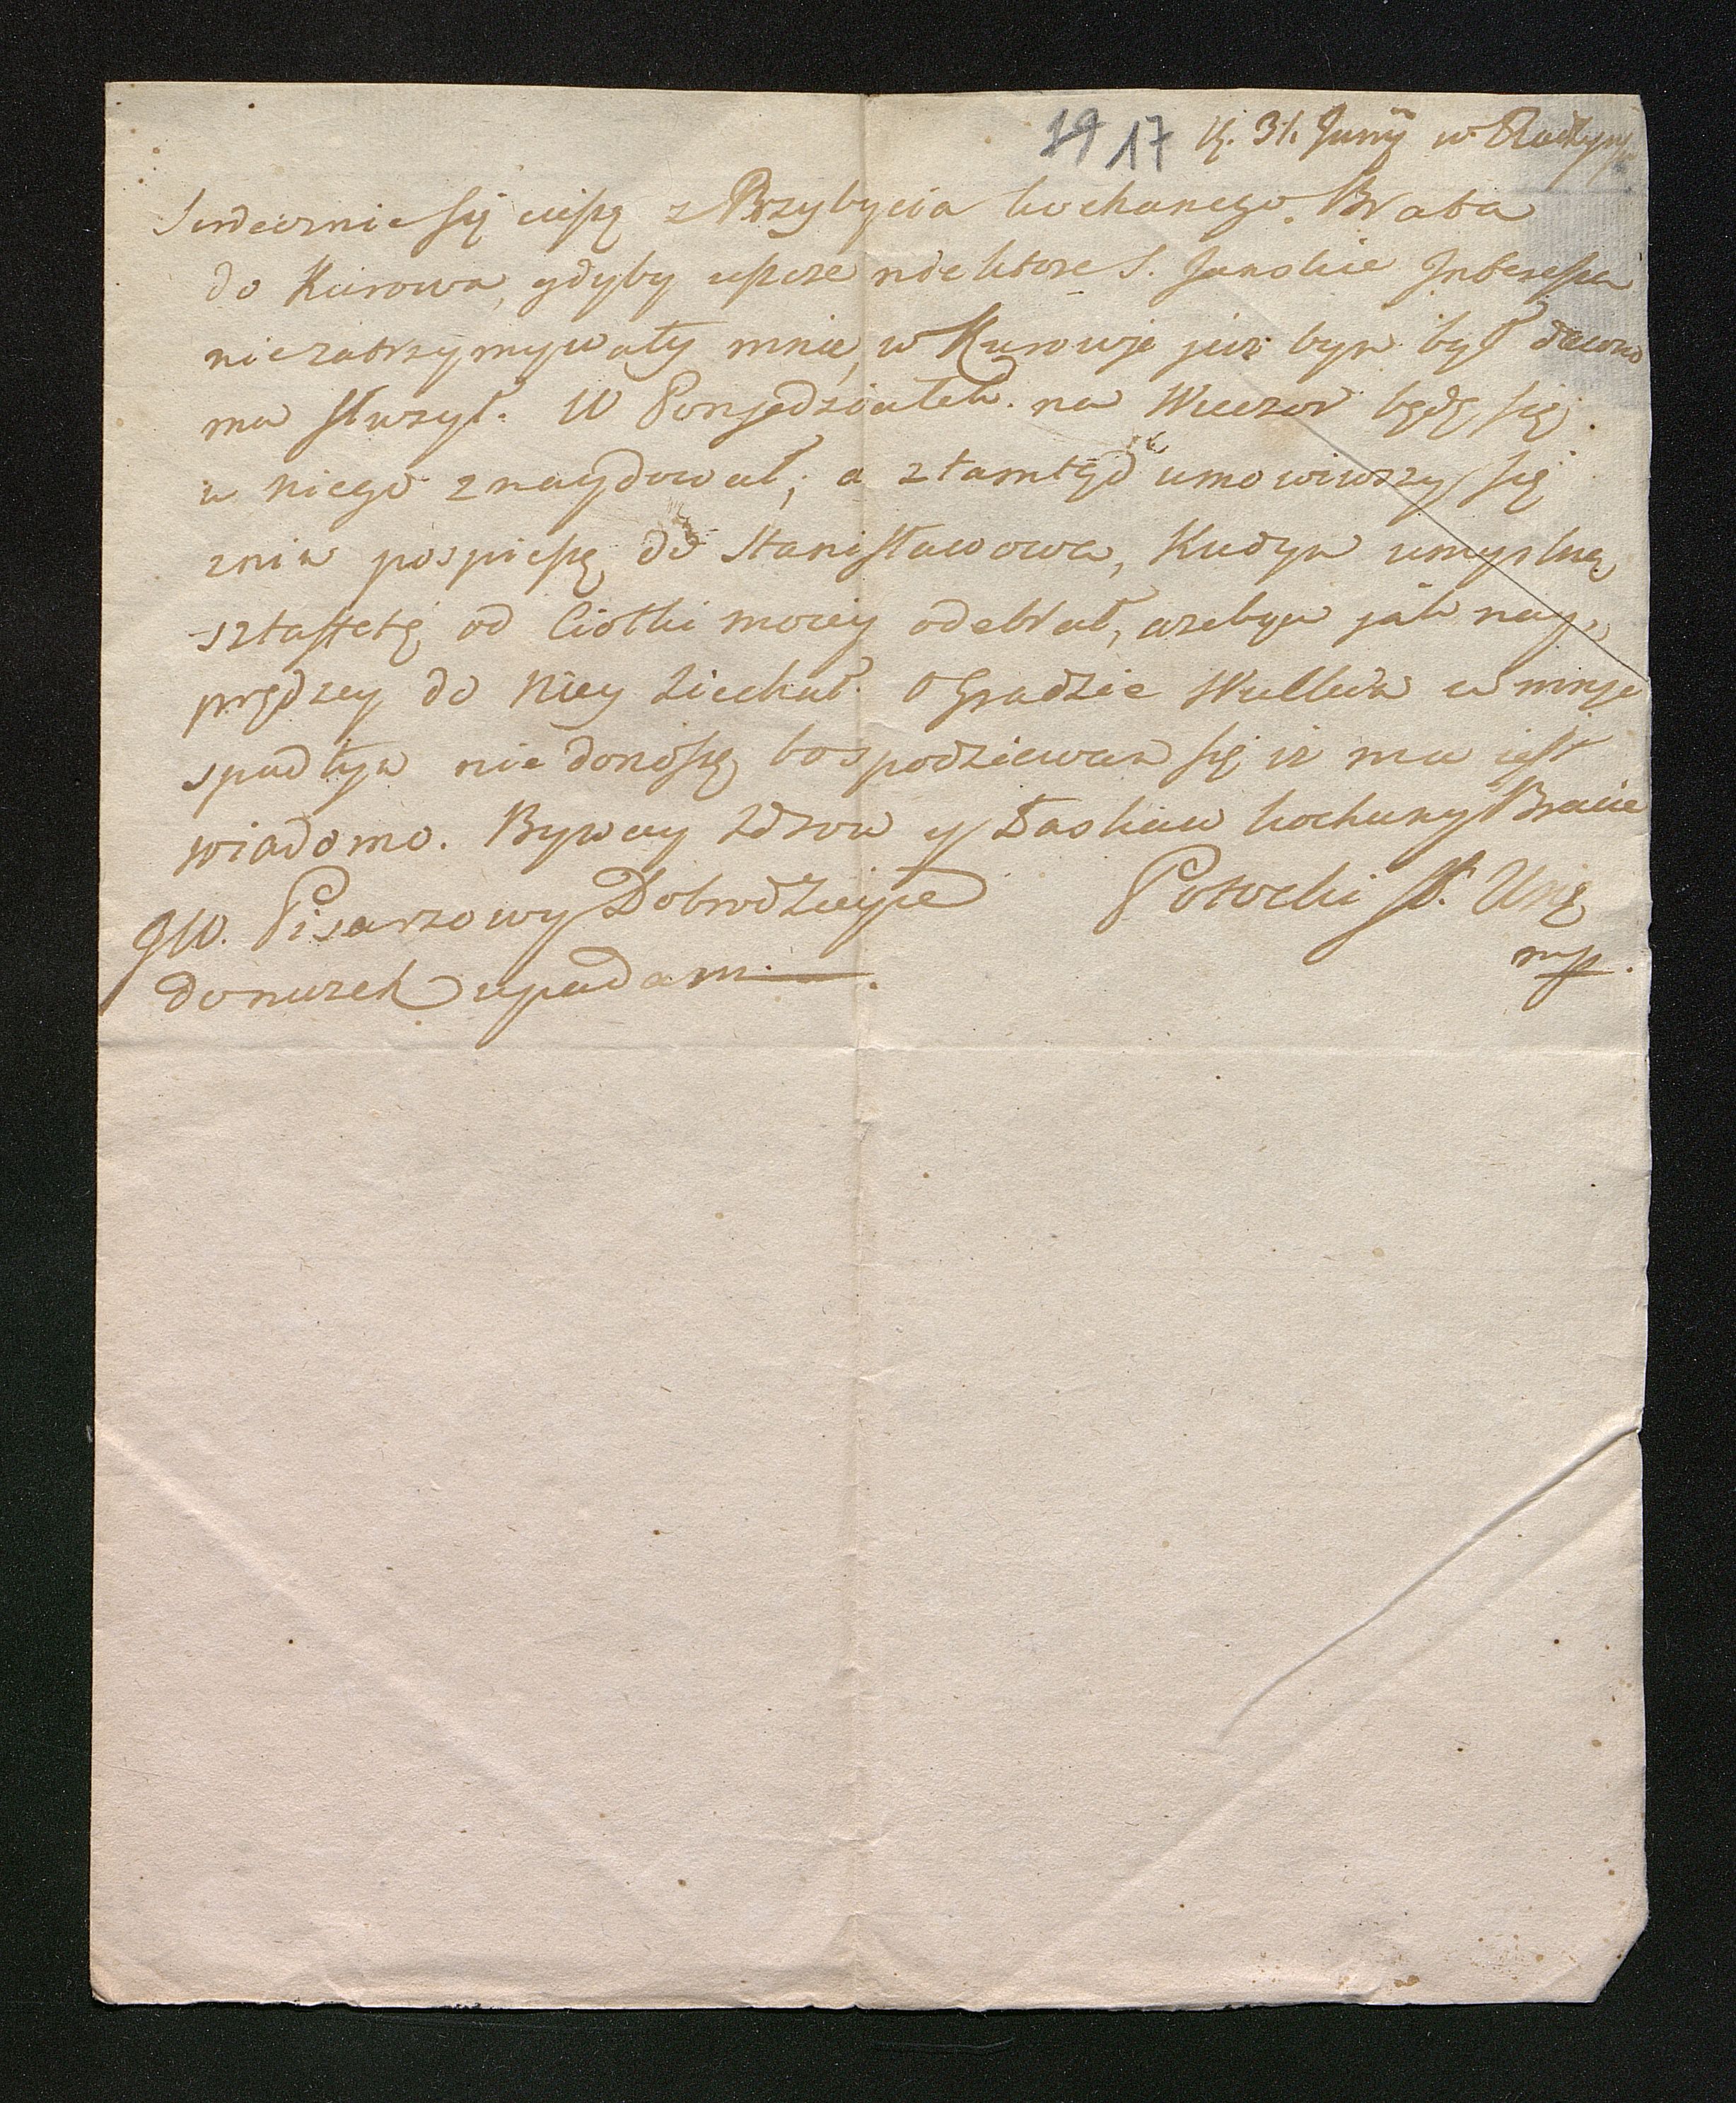 19 17 31. Junÿ w
Serdecznie się cieszę z Przybycia kochanego Brata
do Kurowa, gdyby ieszcze niektore S. Janskie Interessa
niezatrzymywały mnie, w Kurowie juz bym był dawno
mu służył. W Poniedziałek na Wieczor będę się
u niego znaydował, a ztamtąd umowiwszy się
znim pospieszę do Stanisławowa, Kudym umyslną
sztaffetę od Ciotki moiey odebrał, azebym jak nay„
prędzey do Niey ziechał. O Gradzie Wielkim u mnie
spadłym nie donoszę bo spodziewam się iż mu iest
wiadomo. Byway zdrow y Łaskaw kochany Bracie
JW. Pisarzowy Dobrodzieyce Potocki
do nuzek upadam. mp.